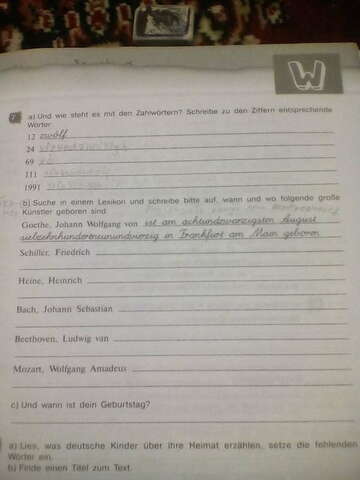 W
7 a) Und wie steht es mit den Zahlwörtern? Schreibe zu den Ziffern entsprechende
Wörter.
12 zwölf
24
69
111
1991
b) Suche in einem Lexikon und schreibe bitte auf, wann und wo folgende große
Künstler geboren sind.
Goethe, Johann Wolfgang von ist am achtundzwanzigsten August
siebzehnhundertneunundvierzig in Frankfurt am Main geboren
Schiller, Friedrich
Heine, Heinrich
Bach, Johann Sebastian
Beethoven, Ludwig van
Mozart, Wolfgang Amadeus
c) Und wann ist dein Geburtstag?
a) Lies, was deutsche Kinder über ihre Heimat erzählen, setze die fehlenden
Wörter ein.
b) Finde einen Titel zum Text.